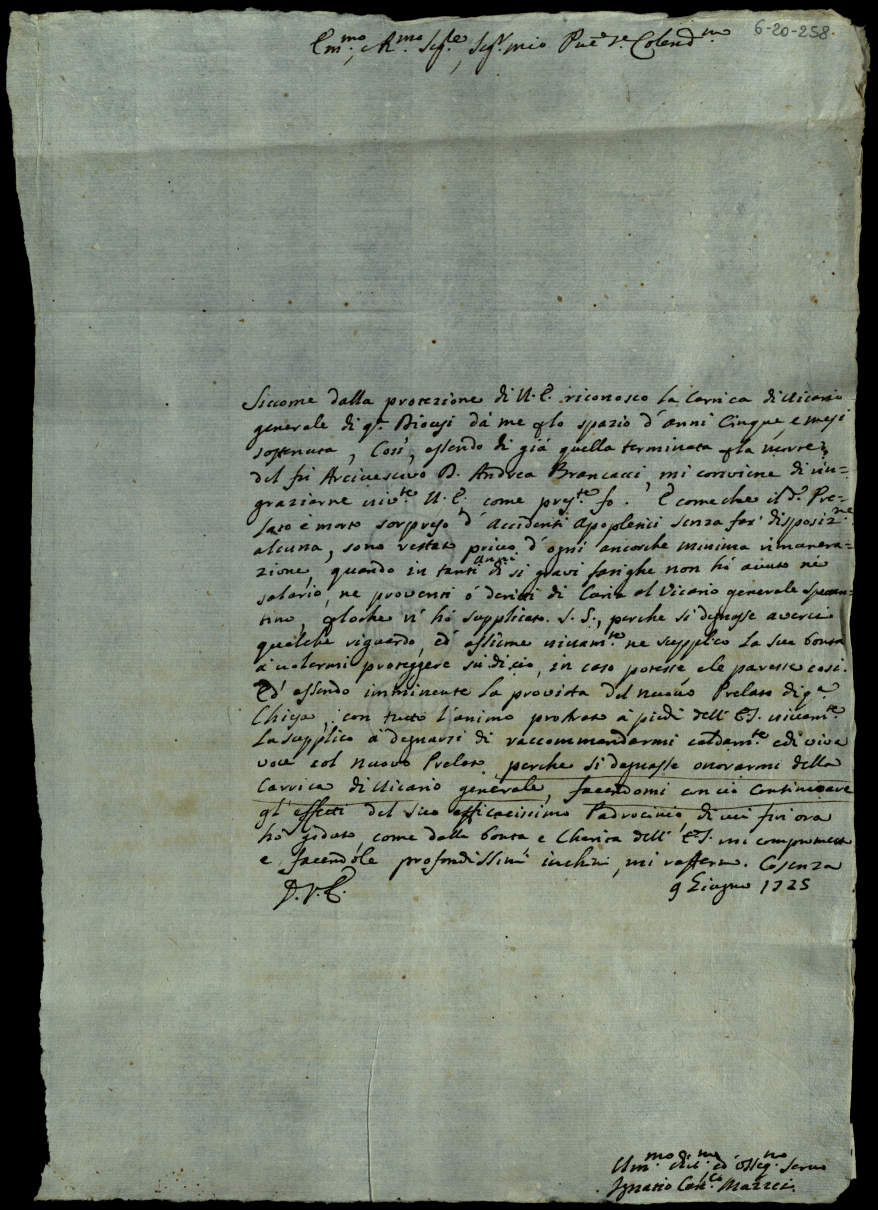 6-20-258
Em.mo, e R.mo Sig.re, Sig.r mio P.ne Colend.mo
Siccome dalla protezione di V. E. riconosco la Carrica di Vicario
generale di q.ta Diocesi da me p lo spazio d' anni Cinque, e mesi
sostenuta, Così, essendo di già quella terminata p la morte
del fù Arcivescovo D. Andrea Brancacci, mi conviene di rin=
graziarne viv.te V. E. come pres.te fo. E come che il d.o Pre=
lato è morto sorpreso d' Accidenti Apopletici senza far disposiz.ne
alcuna, sono restato privo d' ogni ancorche minima rimunera=
zione, quando in tanti anni di si gravi fatighe non hò avuto ne
salario, ne proventi ò deritti di Curia al Vicario generale spettan=
tino, p loche n' hò supplicato S. S., perche si degnasse averci
qualche riguardo, ed' assieme vivam.te ne supplico la sua bontà
a volermi proteggere sù di ciò, in caso potesse e le paresse così.
Ed' essendo imminente la provista del nuovo Prelato di q.ta
Chiesa, con tutto l' animo prostrato a piedi dell' E.S. vivam.te
La supplico a degnarsi di raccommandarmi caldam.te e di viva
voce col nuovo Prelato, perche si degnasse onorarmi della
Carrica di Vicario generale, facendomi con ciò Continuare
gl' effetti del suo efficacissimo Padrocinio, di cui fin ora
hò goduto, come dalla bontà e Charità dell' E.S. mi comprometto
e, facendole profondissimi inchini, mi raffermo. Cosenza
9 Giugno 1725
D. V. E.
Um.mo Div.mo ed' osseq.mo Servo
Ignazio Can.co Mazzei